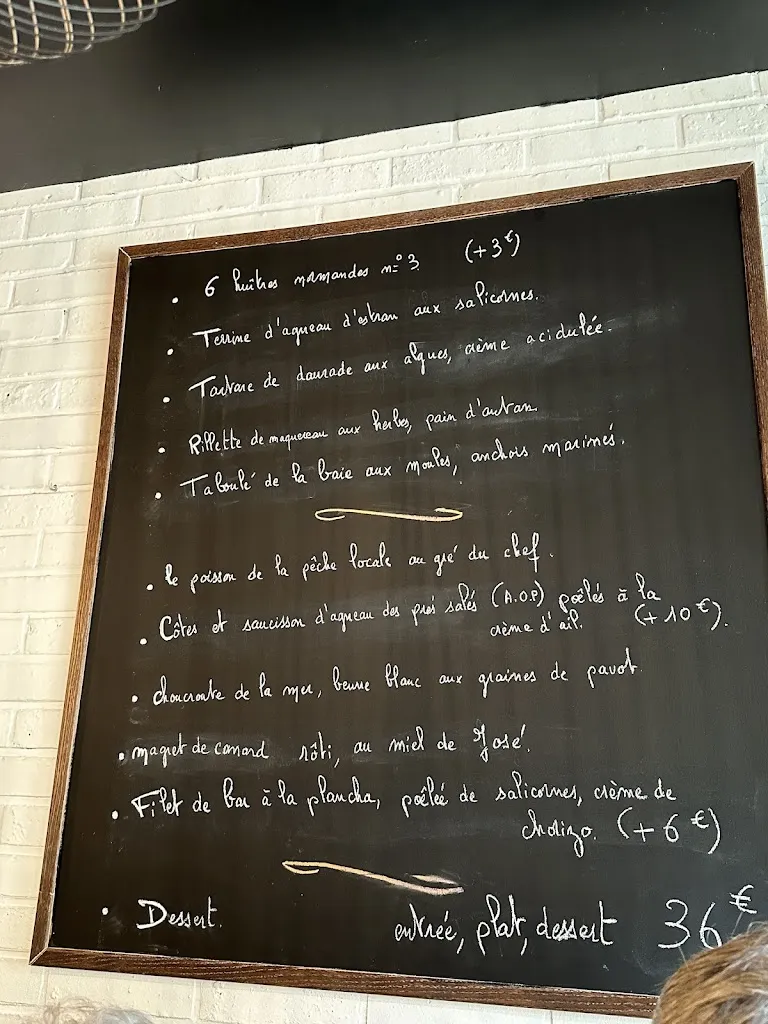 • 6 huîtres normandes n°3 (+3€)
• Terrine d'agneau d'estran aux salicornes.
• Tartare de daurade aux algues, crème acidulée.
• Rillette de maquereau aux herbes, pain d'antan
• Taboulé de la baie aux moules, anchois marinés.
• le poisson de la pêche locale au gré du chef.
• Côtes et saucisson d'agneau des prés salés (A.O.P) poêlés à la
crème d'ail. (+10€).
• choucroute de la mer, beurre blanc aux graines de pavot.
• magret de canard rôti, au miel de José.
• Filet de bar à la plancha, poêlée de salicornes, crème de
chorizo. (+6€)
• Dessert. entrée, plat, dessert 36€